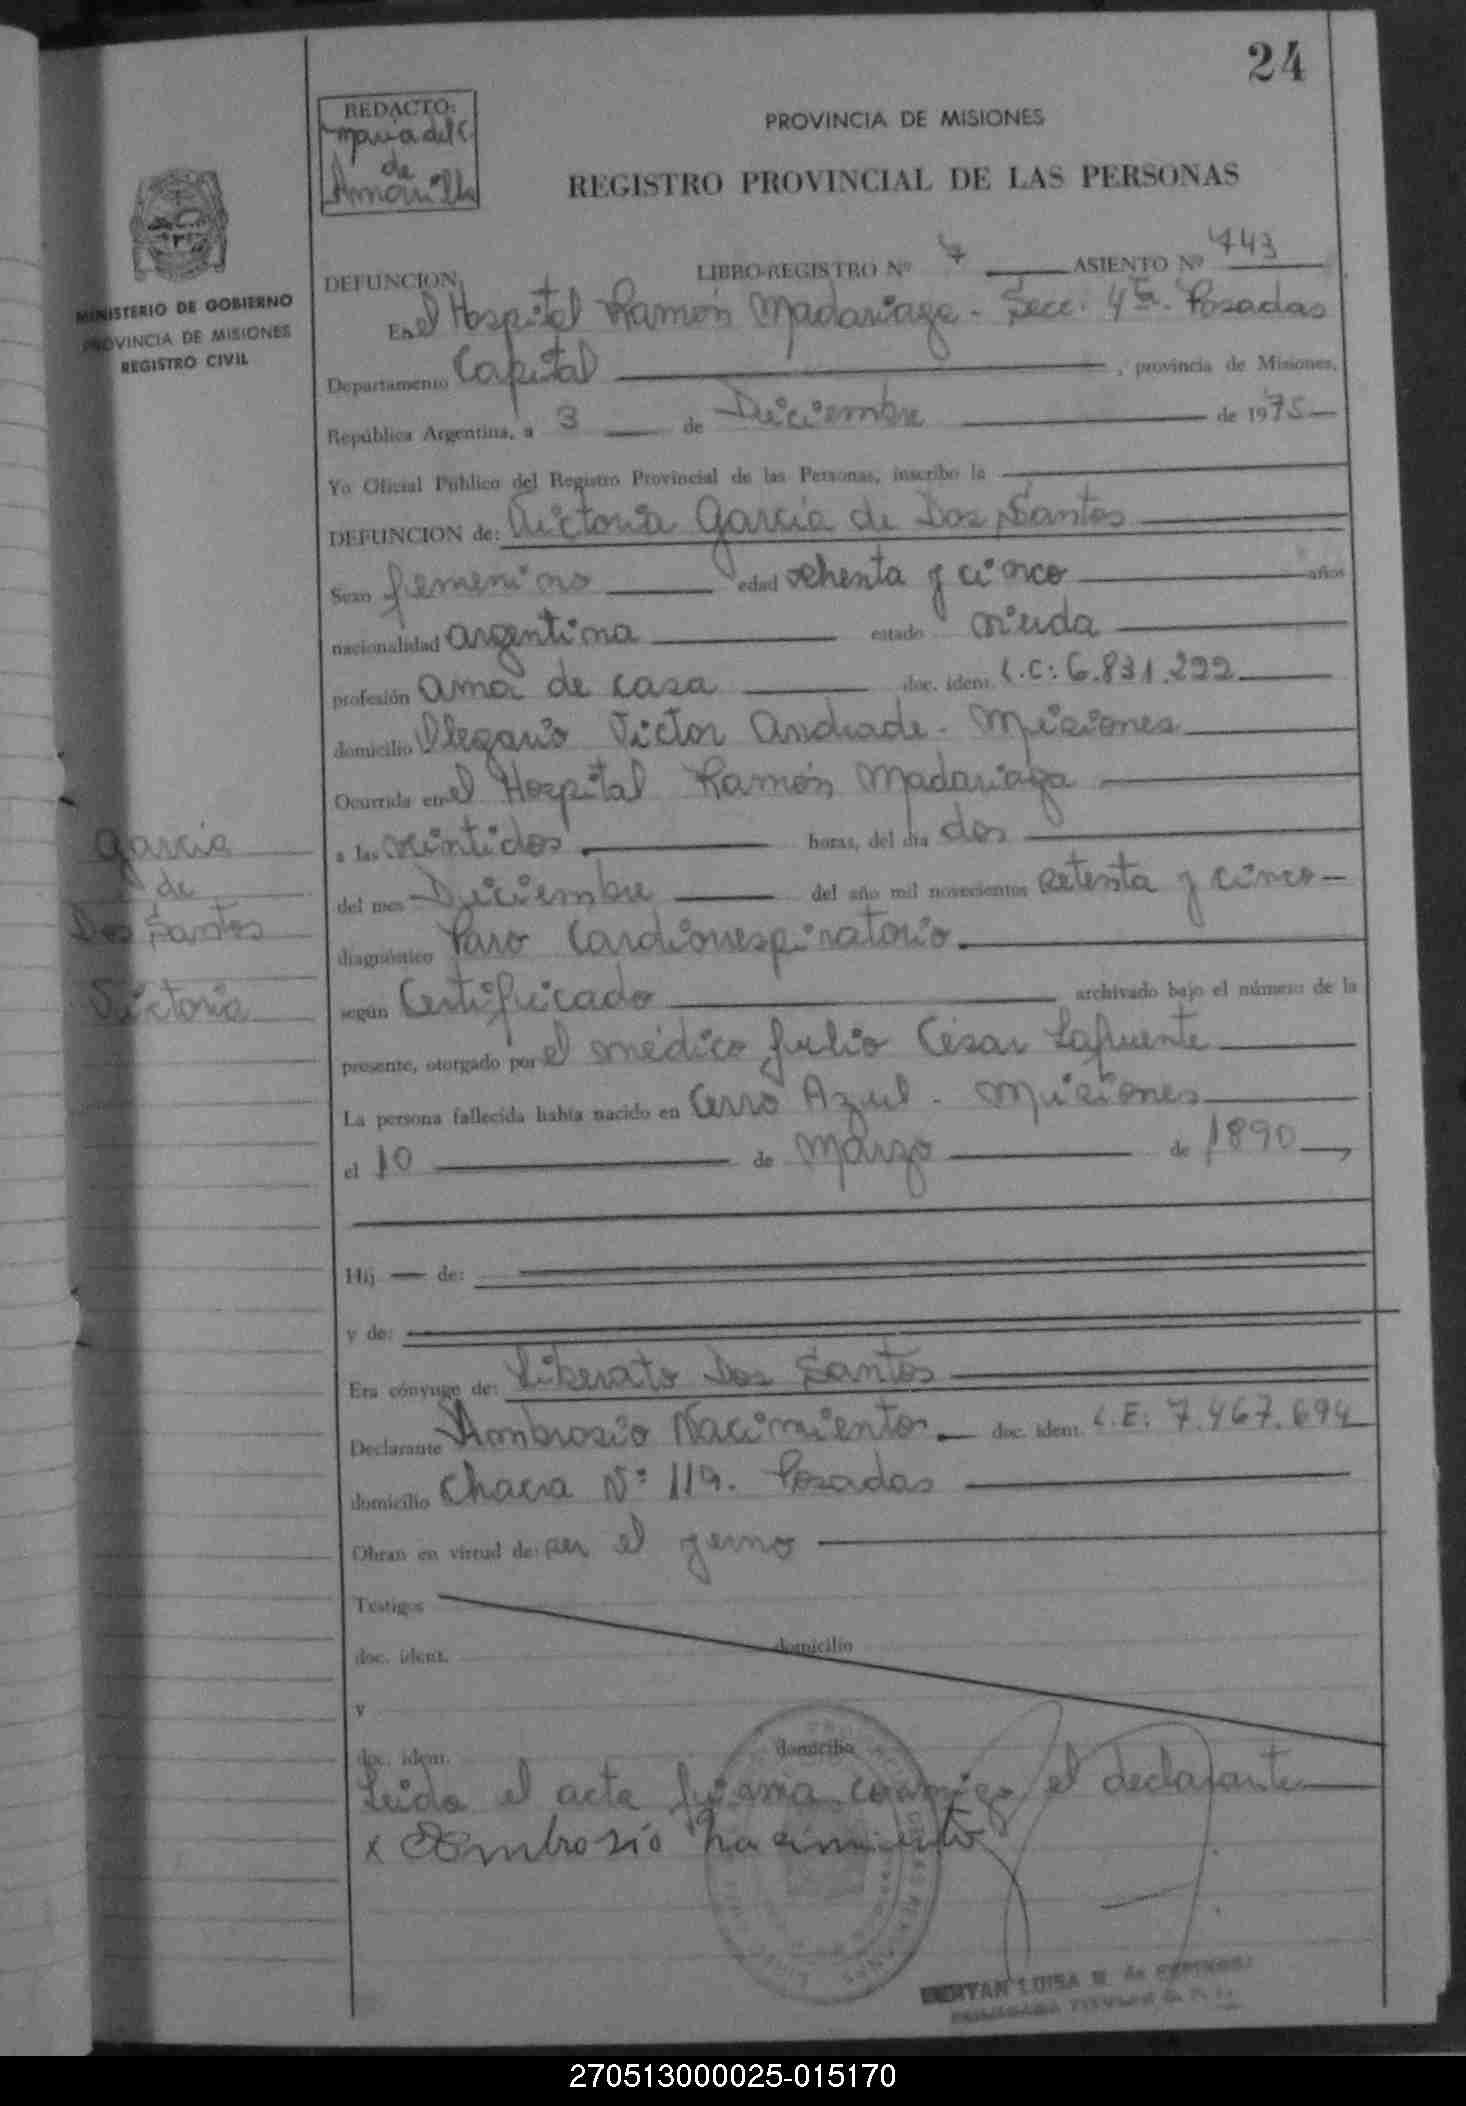 24
REDACTO:
Maria del C.
de
Amarilla
PROVINCIA DE MISIONES
REGISTRO PROVINCIAL DE LAS PERSONAS
MINISTERIO DE GOBIERNO
PROVINCIA DE MISIONES
REGISTRO CIVIL
DEFUNCION LIBRO-REGISTRO Nº 7 ASIENTO Nº 443
En el Hospital Ramón Madariaga - Secc. 4ta. Posadas
Departamento Capital, provincia de Misiones,
República Argentina, a 3 de Diciembre de 1975
Yo Oficial Publico del Registro Provincial de las Personas, inscribo la
DEFUNCION de: Victoria Garcia de Dos Santos
Sexo femenino edad ochenta y cinco años
nacionalidad argentina estado viuda
profesión ama de casa doc. ident. L.C: 6.831.222
domicilio Olegario Victor Andrade - Misiones
Ocurrida en el Hospital Ramón Madariaga
a las veintidos horas, del día dos
del mes Diciembre del año mil novecientos setenta y cinco
diagnóstico Paro Cardiorespiratorio.
según Certificado archivado bajo el número de la
presente, otorgado por el médico Julio César Lafuente
La persona fallecida había nacido en Cerro Azul - Misiones
el 10 de Marzo de 1890
Hij — de:
y de:
Era cónyuge de: Liberato Dos Santos
Declarante Ambrosio Nacimiento. doc. ident. L.E: 7.467.694
domicilio Chacra Nº 119. Posadas
Obran en virtud de: ser el yerno
Testigos
doc. ident. domicilio
y
doc. ident. domicilio
Leida el acta firma conmigo el declarante
x Ambrosio nacimiento
Garcia
de
Dos Santos
Victoria
LUISA
270513000025-015170